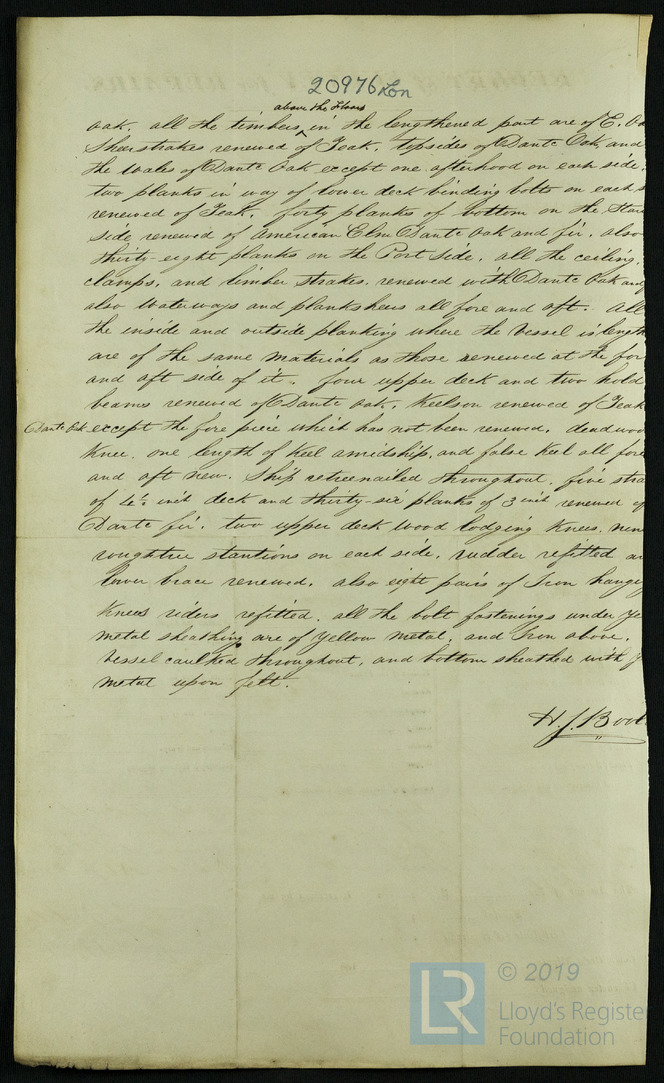 20976 Lon
above the Floors
oak. all the timbers ‸ in the lengthened part are of E. Oa
Sheerstrakes renewed of Teak, topsides of Dantc Oak, and
the wales of Dantc Oak except one afterhood on each side.
two planks in way of lower deck binding bolts on each s
renewed of Teak, forty planks of bottom on the Star
side, renewed of American Elm Dantc Oak and fir, also
thirty-eight planks on the Port side, all the ceiling,
clamps, and limber strakes, renewed with Dantc Oak and
also waterways and planksheers all fore and aft. All
the inside and outside planking where the Vessel is length
are of the same materials as those renewed at the for
and aft side of it. four upper deck and two hold
beams renewed of Dantc oak. Keelson renewed of Teak
Dantc Oak except the fore piece which has not been renewed, deadwoo
Knee, one length of Keel amidship, and false keel all fore
and aft new. Ship retreenailed throughout, five stra
of 4½ inch deck and thirty-six planks of 3 inch renewed of
Dantc fir, two upper deck wood lodging Knees, nin
roughtree stantions on each side, rudder refitted an
lower brace renewed, also eight pairs of Iron hangg
Knees riders refitted, all the bolt fastenings under Ye
metal sheathing are of Yellow metal, and Iron above,
Vessel caulked throughout, and bottom sheathed with Y
metal upon felt.
H. J. Boolt
© 2019
LR
Lloyd's Registe
Foundation